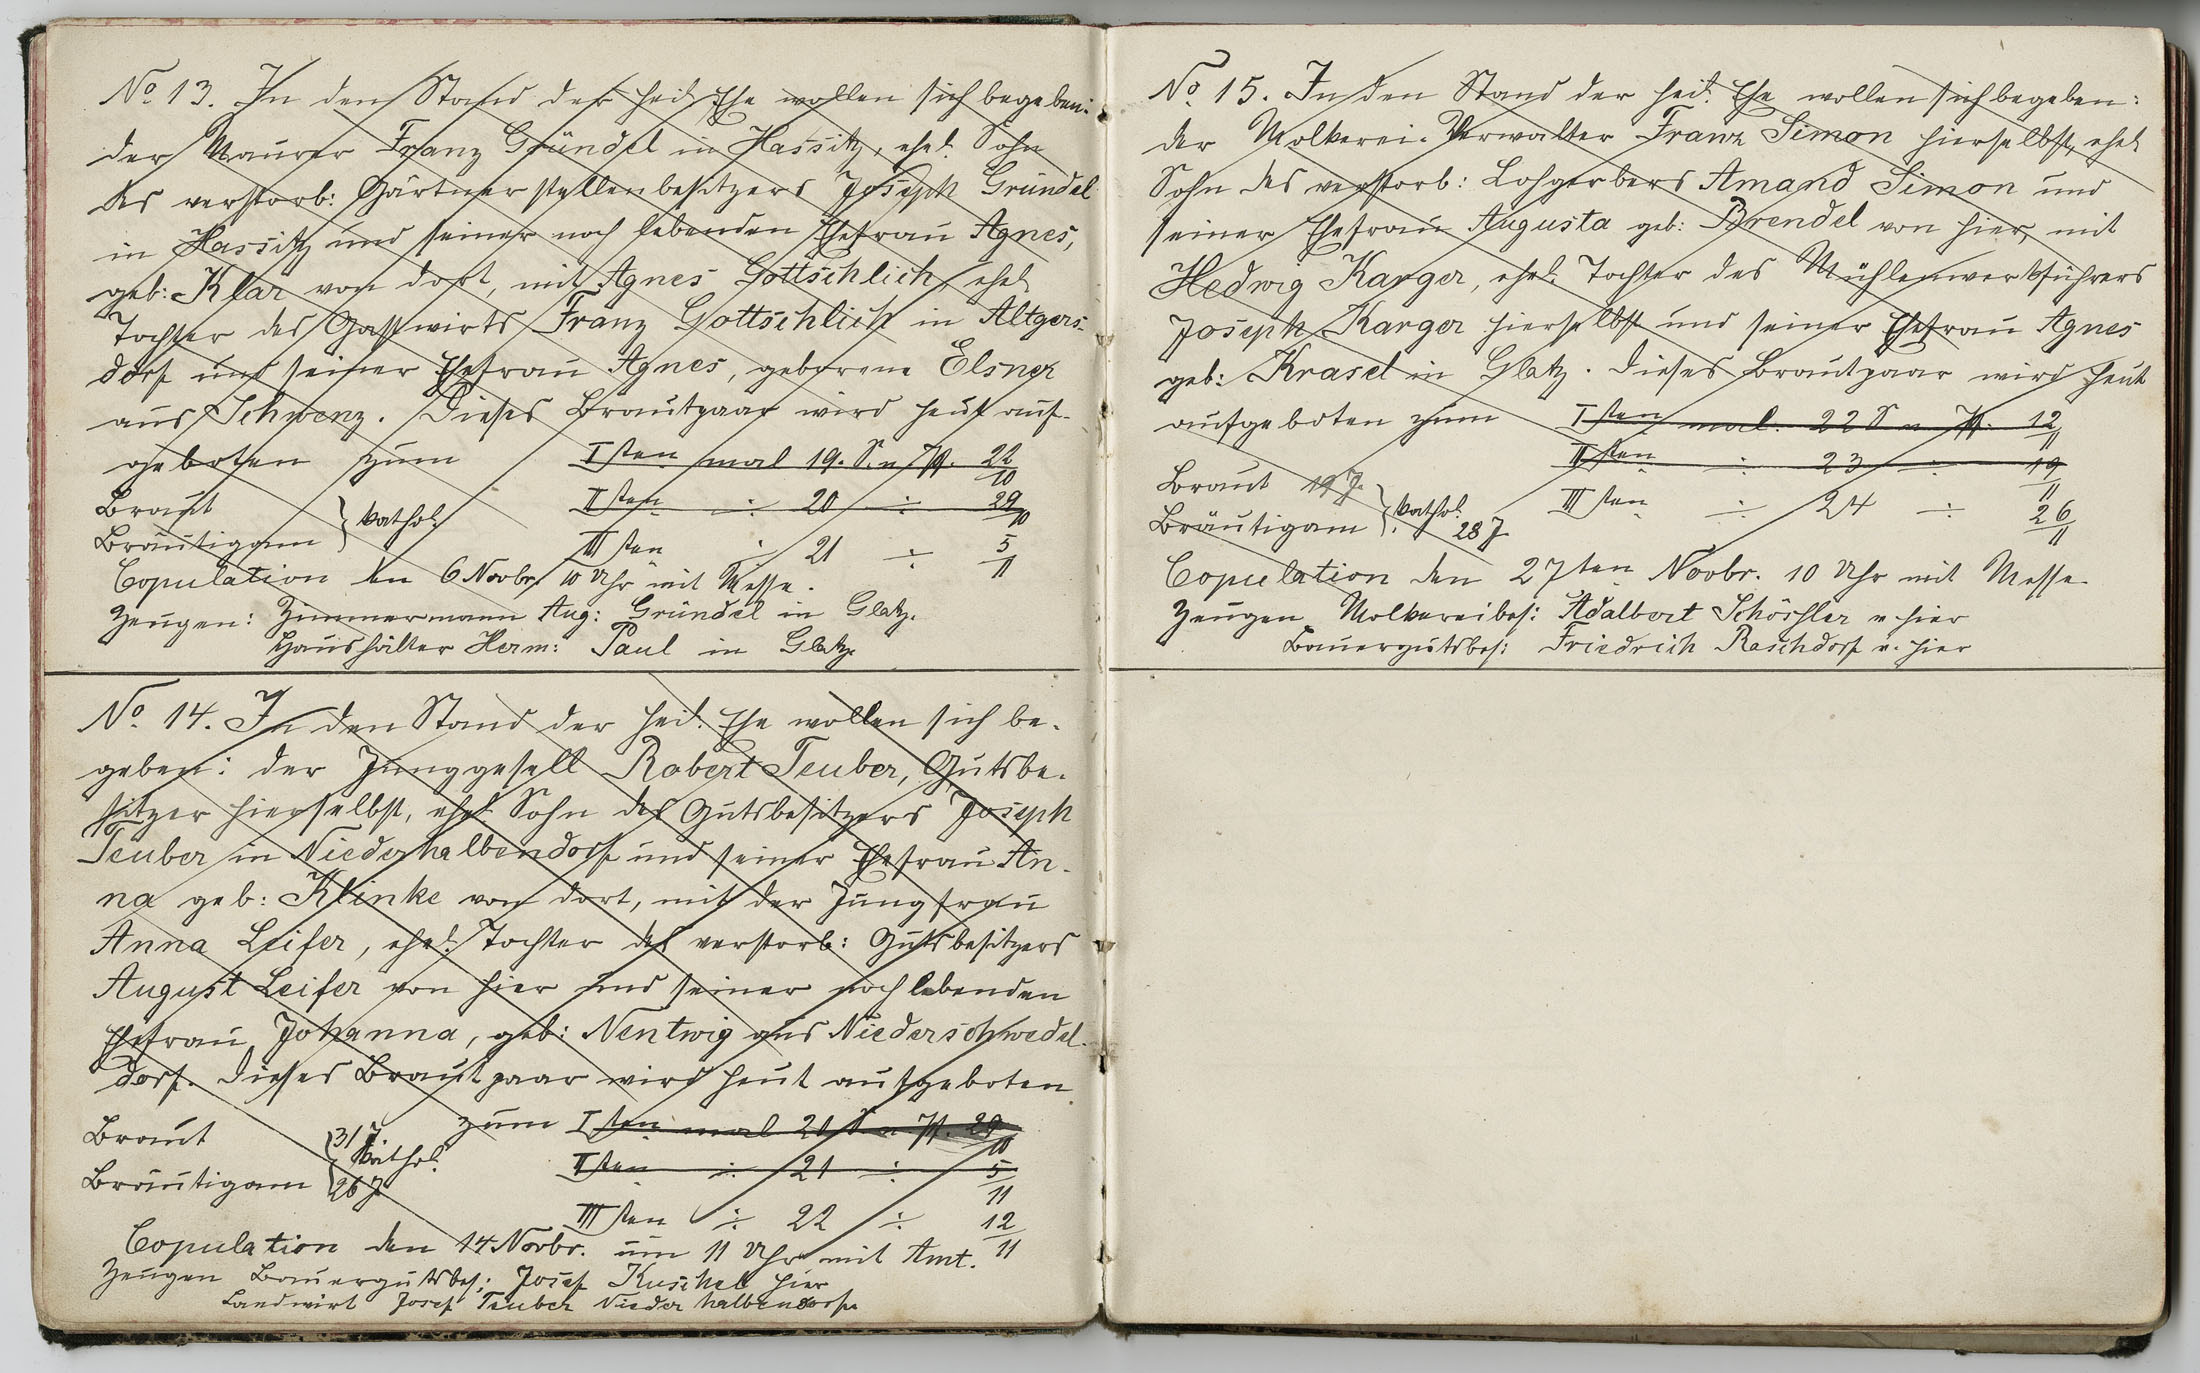 No 13. In den Stand der heil. Ehe wollen sich begeben:
der Maurer Franz Gründel in Hassitz, ehel. Sohn
des verstorb: Gärtnerstellenbesitzers Joseph Gründel
in Hassitz und seiner noch lebenden Ehefrau Agnes,
geb: Klar von dort, mit Agnes Gottschlich, ehel.
Tochter des Gastwirts Franz Gottschlich in Altgers-
dorf und seiner Ehefrau Agnes, geborene Elsner
aus Schwenz. Dieses Brautpaar wird heut auf-
geboten zum Isten mal 19. S. n. Pf. 22/10
Braut
Bräutigam } kathol.
IIsten ÷ 20 ÷ 29/10
IIIsten ÷ 21 ÷ 5/11
Copulation den 6 Novbr. 10 Uhr mit Messe.
Zeugen: Zimmermann Aug: Gründel in Glatz.
Haushälter Herm: Paul in Glatz.
No 14. In den Stand der heil. Ehe wollen sich be-
geben: der Junggesell Robert Teuber, Gutsbe-
sitzer hierselbst, ehel. Sohn des Gutsbesitzers Joseph
Teuber in Niederhalbendorf und seiner Ehefrau An-
na geb: Klinke von dort, mit der Jungfrau
Anna Leifer, ehel. Tochter des verstorb: Gutsbesitzers
August Leifer von hier und seiner noch lebenden
Ehefrau Johanna, geb: Nentwig aus Niederschwedel-
dorf. Dieses Brautpaar wird heut aufgeboten
zum Isten mal 20 S. n. Pf. 29/10
Braut 31 J.
Bräutigam 26 J. } kathol.
IIsten ÷ 21 ÷ 5/11
IIIsten ÷ 22 ÷ 12/11
Copulation den 14. Novbr. um 11 Uhr mit Amt.
Zeugen Bauergutsbes: Josef Kuschel hier
Landwirt Josef Teuber Niederhalbendorf.
No 15. In den Stand der heil. Ehe wollen sich begeben:
der Molkerei-Verwalter Franz Simon hierselbst, ehel.
Sohn des verstorb: Lohgerbers Amand Simon und
seiner Ehefrau Augusta geb: Brendel von hier, mit
Hedwig Karger, ehel. Tochter des Mühlenwerkführers
Joseph Karger hierselbst und seiner Ehefrau Agnes
geb: Krasel in Glatz. Dieses Brautpaar wird heut
aufgeboten zum Isten mal. 22 S. n. Pf. 12/11
IIsten ÷ 23 ÷ 19/11
Braut 19 J.
Bräutigam 28 J. } kathol.
IIIsten ÷ 24 ÷ 26/11
Copulation den 27ten Novbr. 10 Uhr mit Messe.
Zeugen Molkereibes: Adalbert v. hier
Bauergutsbes: Friedrich Raschdorf v. hier